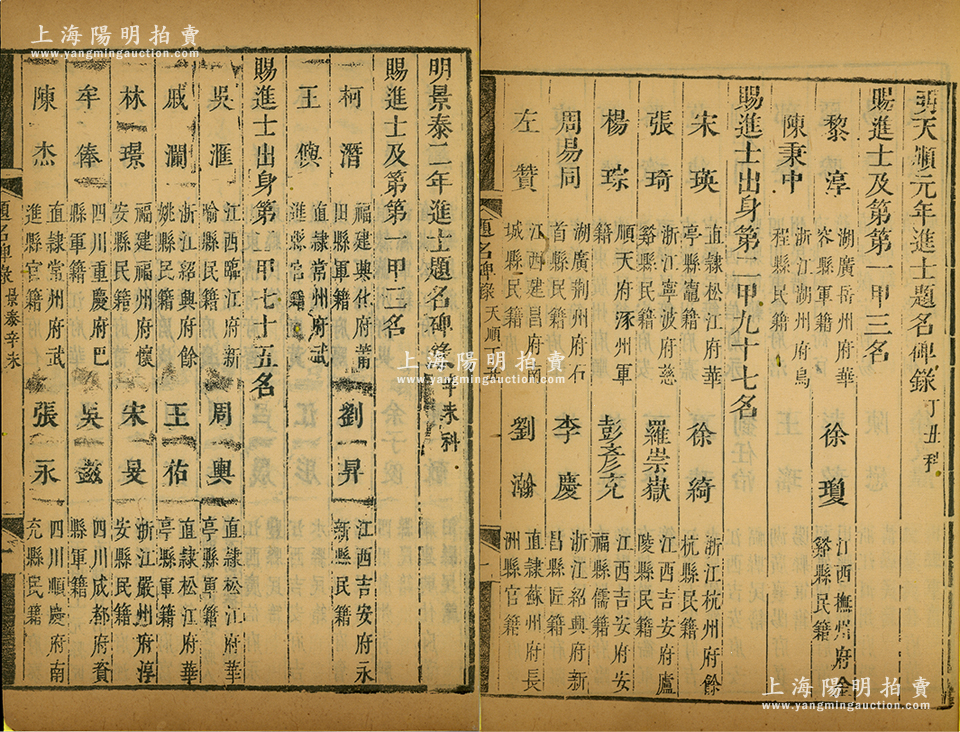 上海陽明拍賣
www.yangmingauction.com
明天順元年進士題名碑錄 丁丑科
賜進士及第第一甲三名
黎淳 湖廣岳州府華容縣軍籍 徐瓊 江西撫州府金谿縣民籍
陳秉中 浙江湖州府烏程縣民籍
賜進士出身第二甲九十七名
宋瑛 直隸松江府華亭縣竈籍 徐綺 浙江杭州府餘杭縣民籍
張琦 浙江寧波府慈谿縣民籍 羅崇嶽 江西吉安府廬陵縣民籍
楊琮 順天府涿州軍籍 彭彥充 江西吉安府安福儒籍
周易同 湖廣荆州府石首縣民籍 李慶 浙江紹興府新昌縣匠籍
左贊 江西建昌府城縣民籍 劉瀚 直隸蘇州府長洲縣官籍
題名碑錄 天順
上海陽明拍賣
www.yangmingauction.com
明景泰二年進士題名碑錄 辛未科
賜進士及第第一甲三名
柯潛 福建興化府莆田縣軍籍 劉昇 江西吉安府永新縣民籍
王㒜 直隸常州府武進縣官籍
賜進士出身第二甲七十五名
吳滙 江西臨江府新喻縣民籍 周輿 直隸松江府華亭縣軍籍
戚瀾 浙江紹興府餘姚縣民籍 王佑 直隸松江府華亭縣軍籍
林璟 福建福州府懷安縣民籍 宋旻 浙江嚴州府淳安縣民籍
牟俸 四川重慶府巴縣軍籍 吳 四川成都府資縣軍籍
陳杰 直隸常州府武進縣官籍 張永 四川順慶府南充縣民籍
題名碑錄 景泰辛未
上海陽明拍賣
www.yangmingauction.com
上海陽明拍賣
www.yangmingauction.com